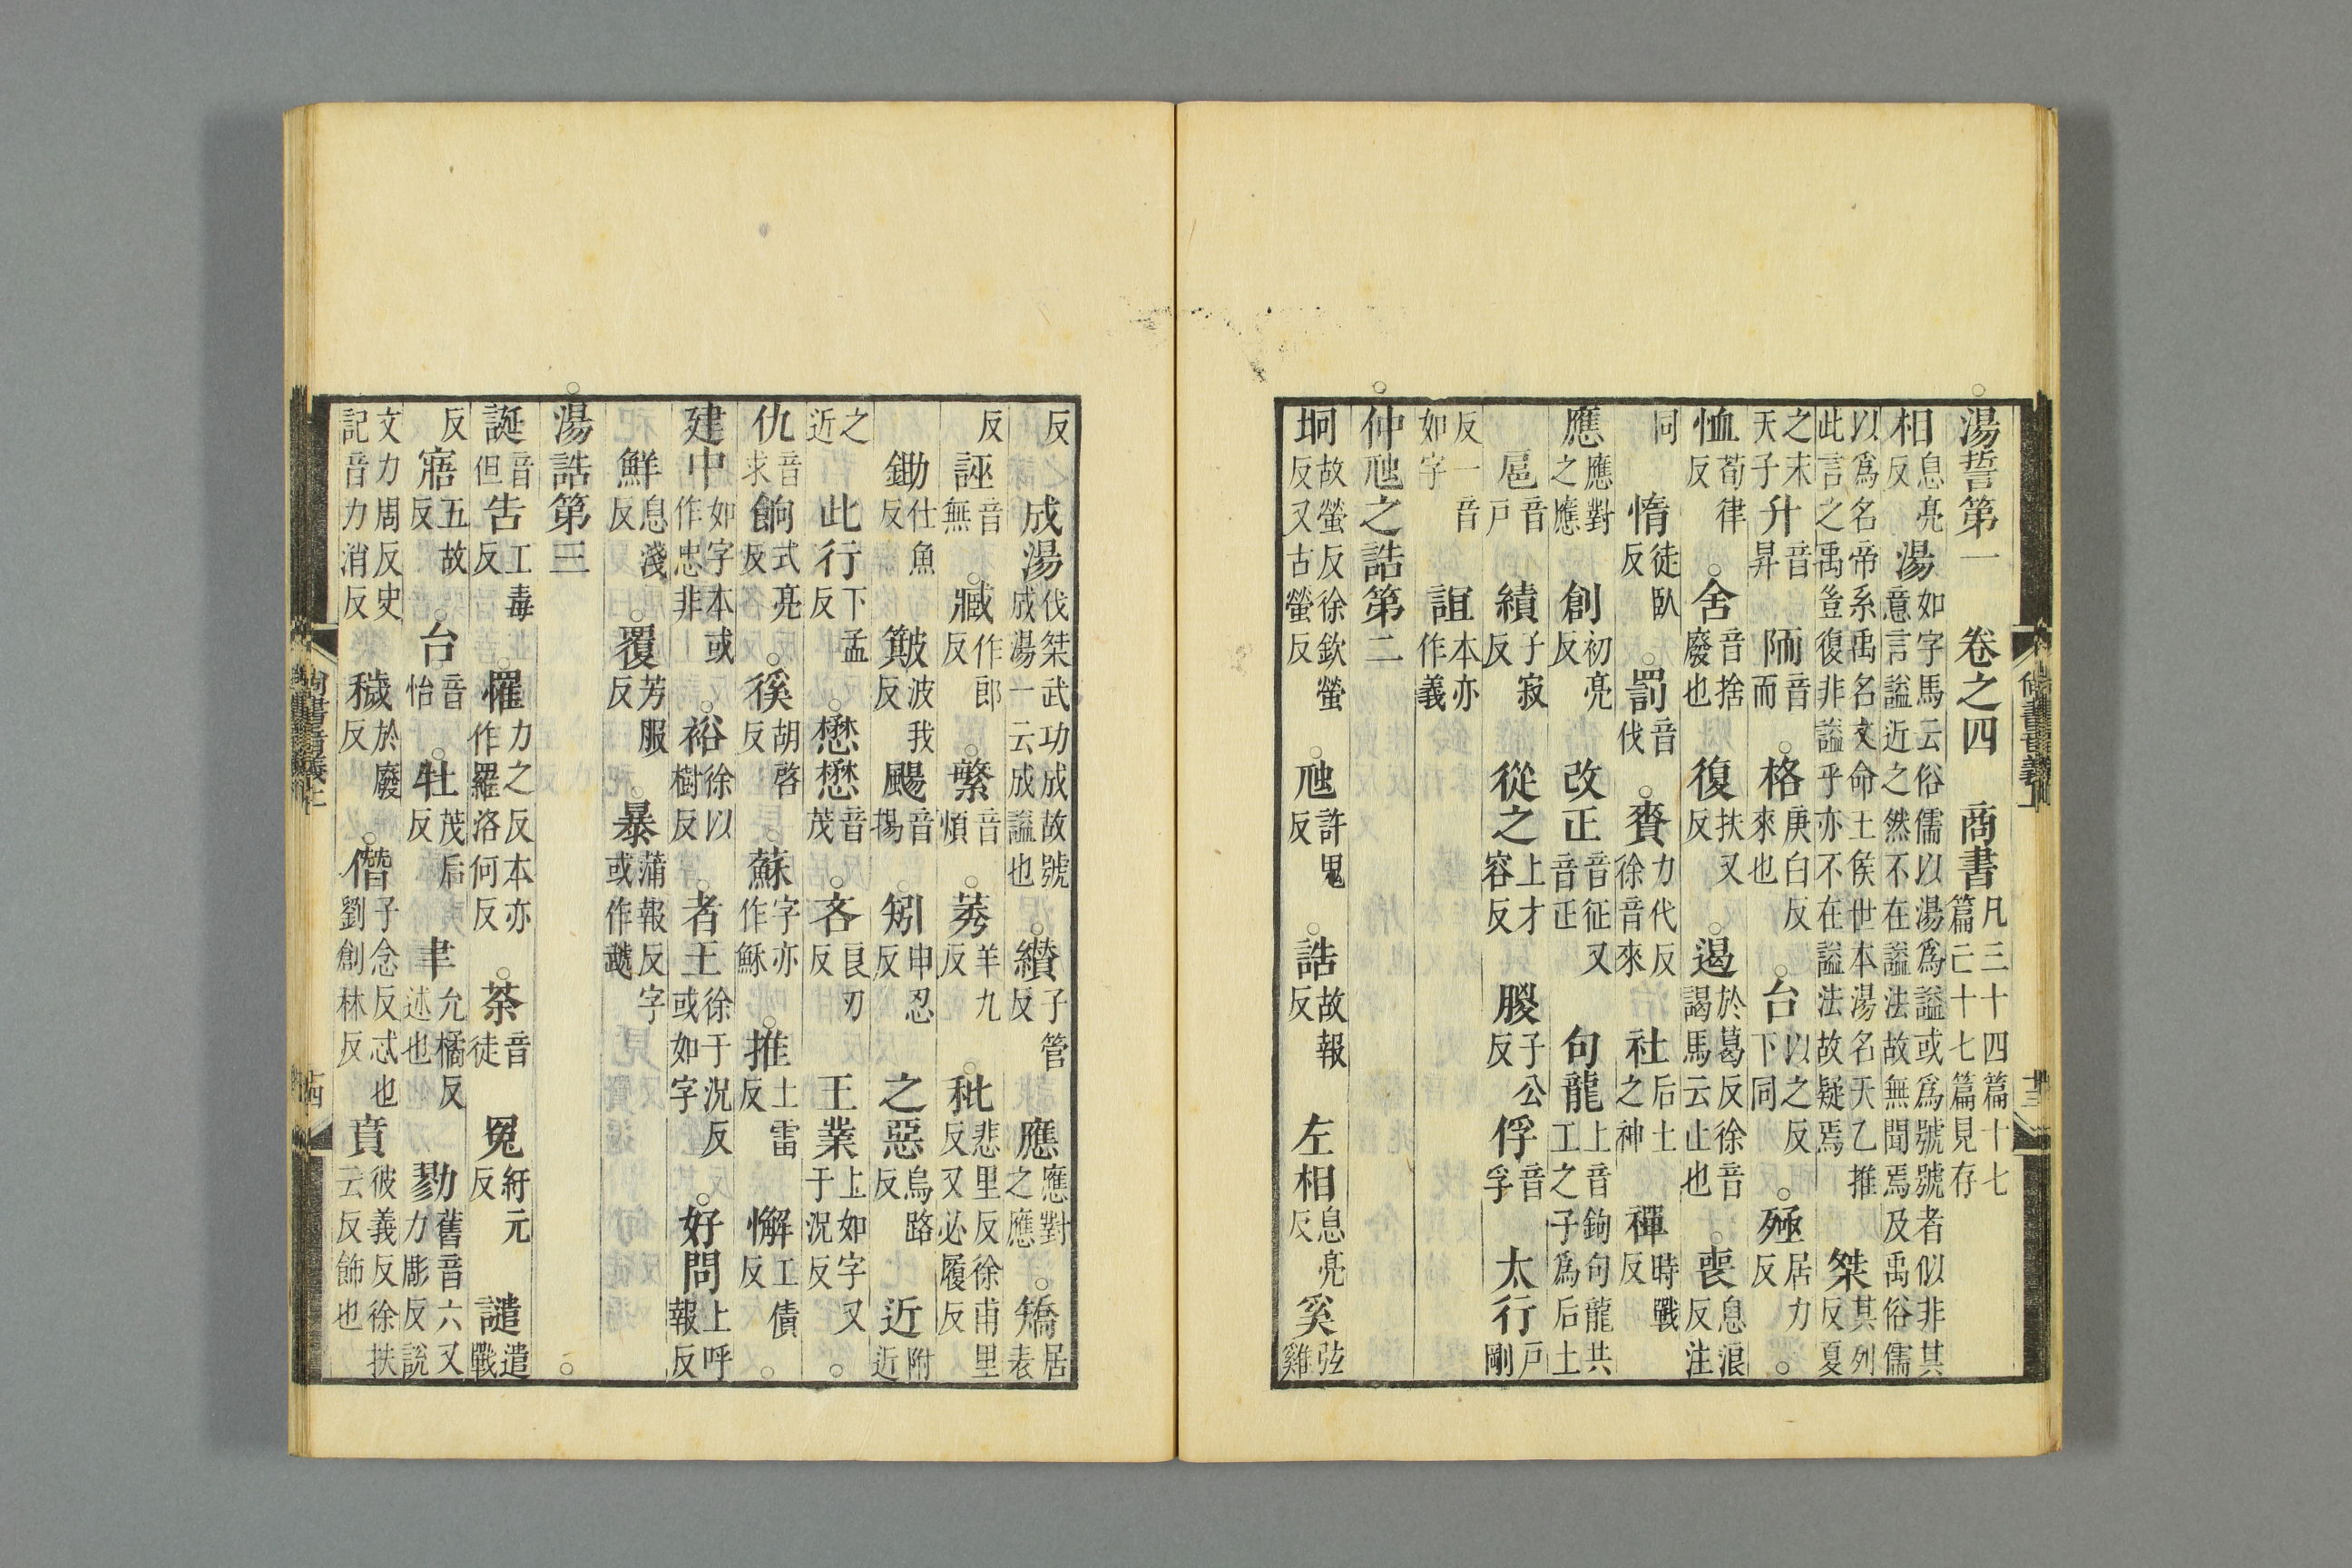 湯誓第一　卷之四　商書凡三十四篇十七篇亡十七篇見存
相息亮反　湯如字馬云俗儒以湯爲謚或爲號號者似非其意言謚近之然不在謚法故無聞焉及禹俗儒
以爲名帝系禹名文命王侯世本湯名天乙推此言之禹豈復非謚乎亦不在謚法故疑焉　桀其列反夏
之末天子　升音昇　陑音而○格庚白反來也○台以之反下同○殛居力反○
恤荀律反○舍音捨廢也　復扶又反○遏於葛反徐音謁馬云止也○喪息浪反注
同　惰徒臥反○罰音伐○賚力代反徐音來　社后土之神　禪時戰反
應應對之應　創初亮反　改正音征又音正　句龍上音鉤句龍共工之子爲后土
扈音戶　績子寂反　從之上才容反　朡子公反　俘音孚　太行戶剛
反一音如字　誼本亦作義
○仲虺之誥第二
坰故螢反徐欽螢反又古螢反○虺許鬼反○誥故報反　左相息亮反　奚弦雞
反　成湯伐桀武功成故號成湯一云成謚也○纘子管反　應應對之應○矯居表
反　誣音無○臧作郎反○繁音煩○莠羊九反○秕悲里反徐甫里反又必履反
鋤仕魚反　簸波我反　颺音揚○矧申忍反　之惡烏路反　近附近
之近　此行下孟反○懋懋音茂○吝良刃反　王業上如字又于況反○
仇音求　餉式亮反○徯胡啓反　蘇字亦作穌○推土雷反　懈工債反○
建中如字本或作忠非○裕徐以樹反○者王徐于況反或如字○好問上呼報反
鮮息淺反○覆芳服反○暴蒲報反字或作虣
○湯誥第三○
誕音但　告工毒反○罹力之反本亦作羅洛何反○荼音徒　冤紆元反　譴遣戰
反　寤五故反○台音怡○牡茂后反　聿允橘反述也　勠舊音六又力彫反說
文力周反史記音力消反　穢於廢反○僭子念反忒也劉創林反　賁彼義反徐扶云反飾也